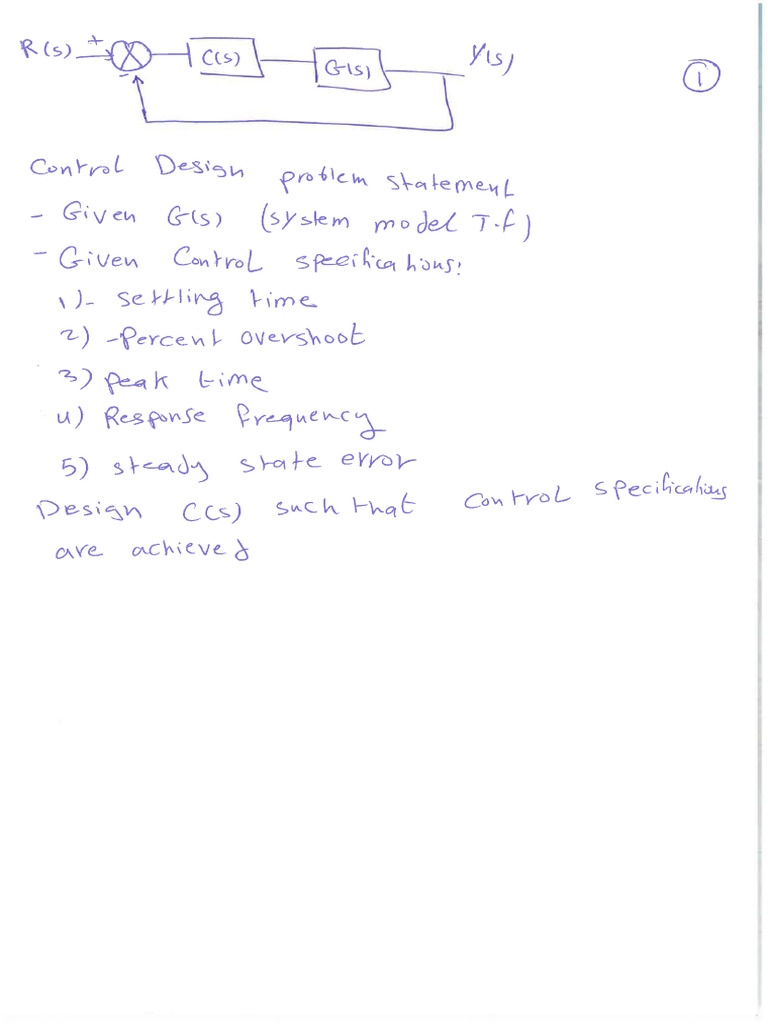 R(s) + C(s) G(s) Y(s)
-
1
Control Design problem statement
- Given G(s) (system model T.f)
- Given Control specifications:
1)- settling time
2) -Percent overshoot
3) peak time
4) Response frequency
5) steady state error
Design C(s) such that control specifications
are achieved